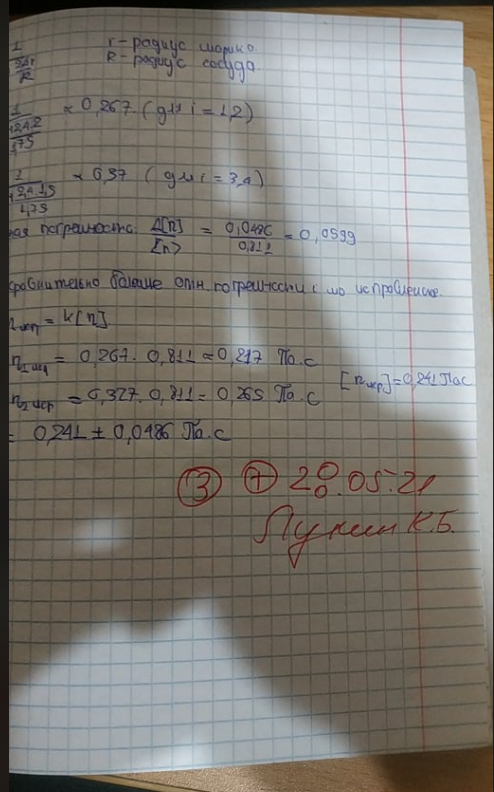 r - радиус шарика
R - радиус сосуда
1
2,4r
R
1
≈ 0,267 (для i = 1,2)
1,75
1
≈ 0,37 (для i = 3,4)
1,75
ая погрешность: Δ[η] / [η] = 0,0486 / 0,811 = 0,0599
сравнительно больше отн. погрешности с из исправленное
исп = k[η]
η1 исп = 0,267 · 0,811 ≈ 0,217 Па·с
η2 иср = 0,327 · 0,811 = 0,265 Па·с
[η иср] = 0,241 Па·с
= 0,241 ± 0,0486 Па·с
3 + 20.05.21
Лунин К.Б.